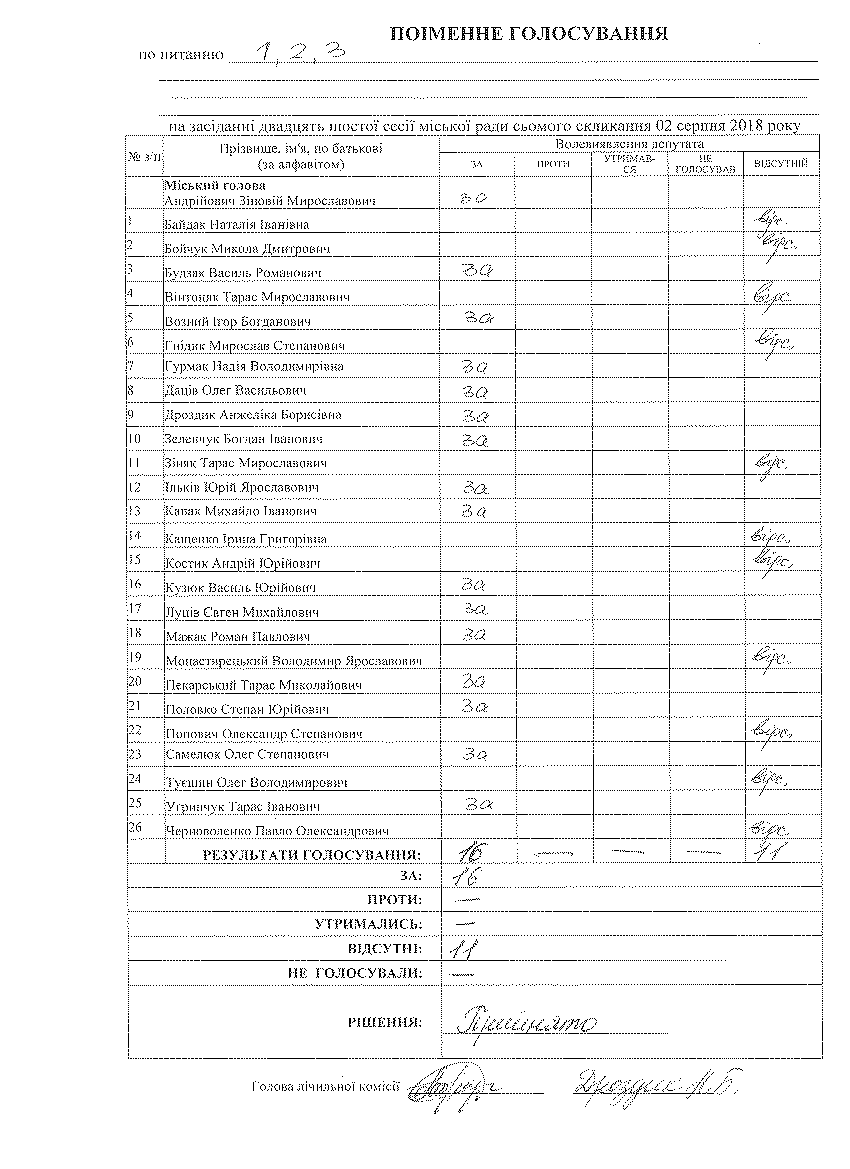 ПОІМЕННЕ ГОЛОСУВАННЯ
по питанню 1, 2, 3
на засіданні двадцять шостої сесії міської ради сьомого скликання 02 серпня 2018 року
№ з/п Прізвище, ім'я, по батькові (за алфавітом) Волевиявлення депутата
ЗА ПРОТИ УТРИМАВ-СЯ НЕ ГОЛОСУВАВ ВІДСУТНІЙ
Міський голова
Андрійович Зіновій Мирославович за
1 Байдак Наталія Іванівна відс.
2 Бойчук Микола Дмитрович відс.
3 Будзак Василь Романович за
4 Вінтоняк Тарас Мирославович відс
5 Возний Ігор Богданович за
6 Гнідик Мирослав Степанович відс.
7 Гурмак Надія Володимирівна за
8 Даців Олег Васильович за
9 Дроздик Анжеліка Борисівна за
10 Зеленчук Богдан Іванович за
11 Зіняк Тарас Мирославович відс.
12 Ільків Юрій Ярославович за
13 Кабак Михайло Іванович за
14 Кащенко Ірина Григорівна відс.
15 Костик Андрій Юрійович відс.
16 Кузюк Василь Юрійович за
17 Луців Євген Михайлович за
18 Мажак Роман Павлович за
19 Монастирецький Володимир Ярославович відс.
20 Пекарський Тарас Миколайович за
21 Половко Степан Юрійович за
22 Попович Олександр Степанович відс.
23 Самелюк Олег Степанович за
24 Олег Володимирович відс.
25 Угринчук Тарас Іванович за
26 Черноволенко Павло Олександрович відс.
РЕЗУЛЬТАТИ ГОЛОСУВАННЯ: 16 — — — 11
ЗА: 16
ПРОТИ: —
УТРИМАЛИСЬ: —
ВІДСУТНІ: 11
НЕ ГОЛОСУВАЛИ: —
РІШЕННЯ: Прийнято
Голова лічильної комісії Дроздик А.Б.